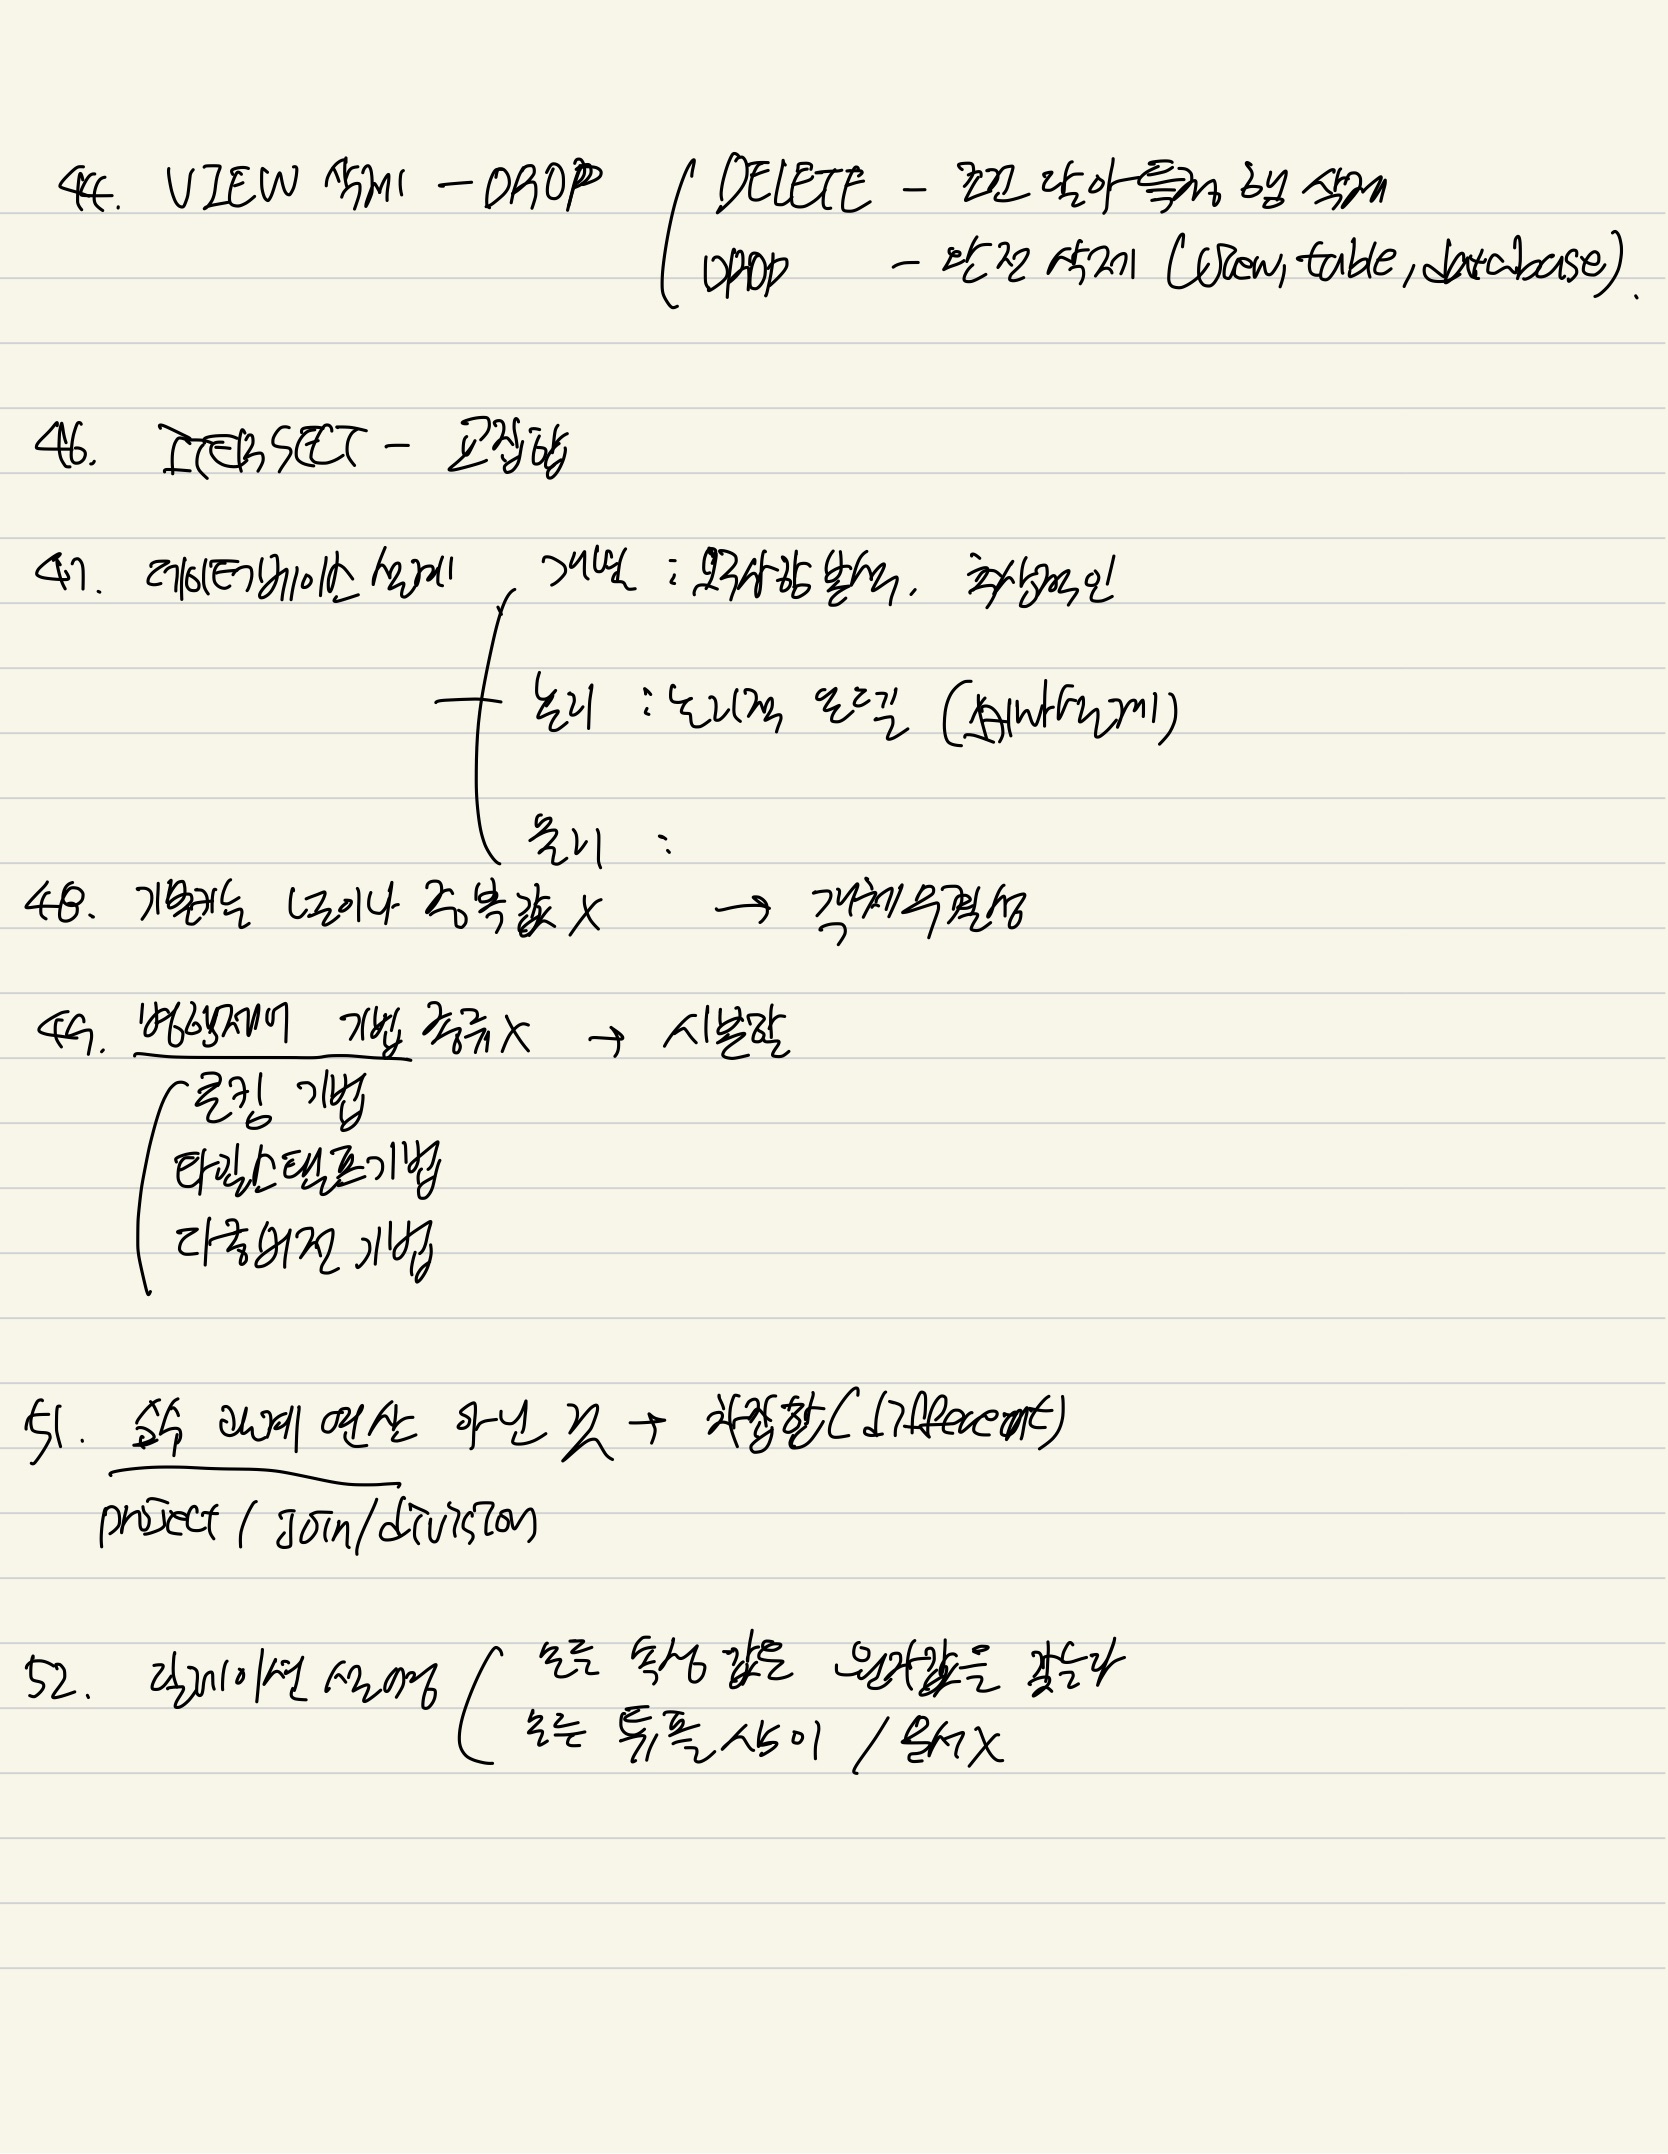 44. VIEW 삭제 - DROP ( DELETE - 조건 달아 특정 행 삭제
DROP - 완전 삭제 (view, table, database).
46. ITERSECT - 교집합
47. 데이터베이스 설계 개념 : 요구사항 분석. 추상적인
논리 : 논리적 모델 (스키마설계)
물리 :
48. 기본키는 널이나 중복값 X → 객체무결성
49. 병행제어 기법 종류X → 시분할
로킹 기법
타임스탬프기법
다중버전 기법
51. 순수 관계 연산 아닌 것 → 차집합(different)
project / Join/division
52. 릴레이션 설명 ( 모든 속성 값은 원자값을 갖는다
모든 튜플 상이 / 순서X